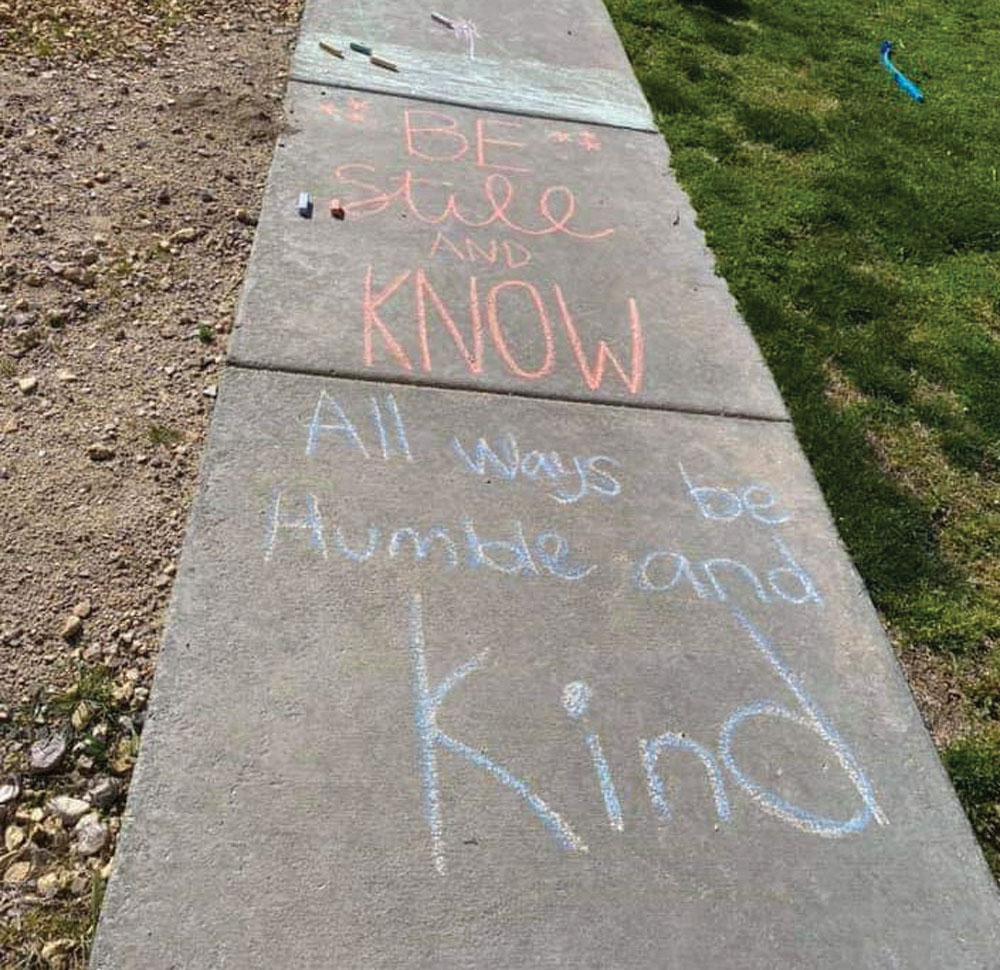 BE
Still
AND
KNOW
All Ways be
Humble and
Kind